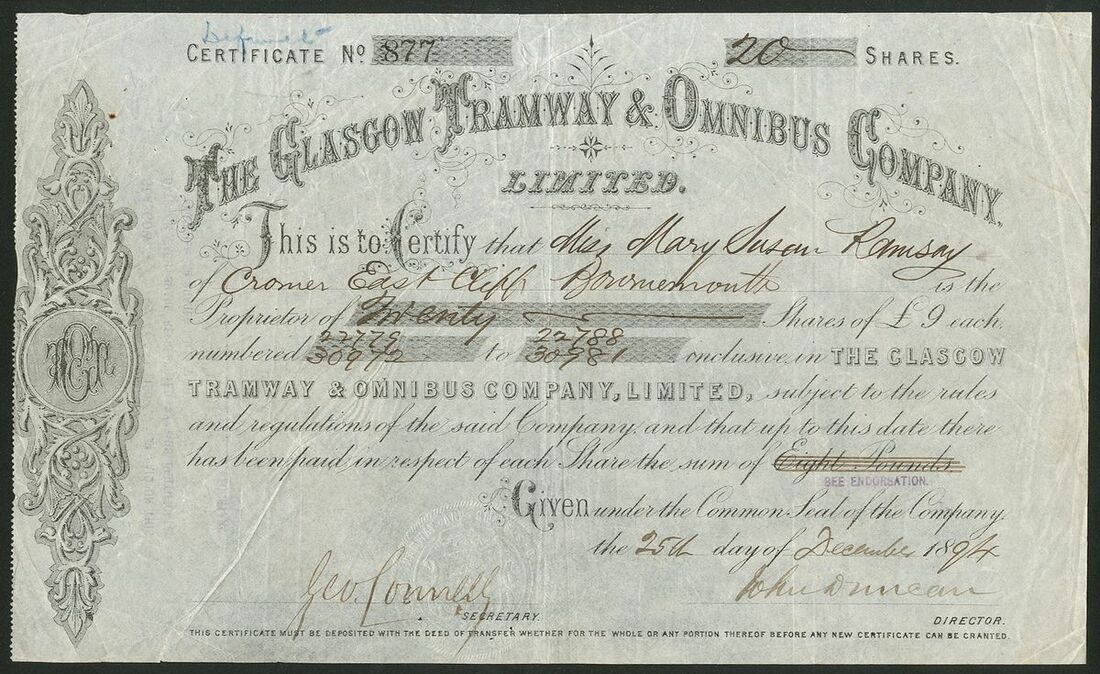 CERTIFICATE No 877 20 SHARES.
THE GLASGOW TRAMWAY & OMNIBUS COMPANY,
LIMITED.
This is to Certify that Miss Mary Susan Ramsay
of Cromer East Cliff Bournemouth is the
Proprietor of Twenty Shares of £9 each,
22779 22788
numbered 30972 to 30981 inclusive, in THE GLASGOW
TRAMWAY & OMNIBUS COMPANY, LIMITED, subject to the rules
and regulations of the said Company, and that up to this date there
has been paid in respect of each Share the sum of Eight Pounds.
SEE ENDORSATION.
Given under the Common Seal of the Company,
the 25th day of December 1894
Geo. Connell John Duncan
SECRETARY.
DIRECTOR.
THIS CERTIFICATE MUST BE DEPOSITED WITH THE DEED OF TRANSFER WHETHER FOR THE WHOLE OR ANY PORTION THEREOF BEFORE ANY NEW CERTIFICATE CAN BE GRANTED.